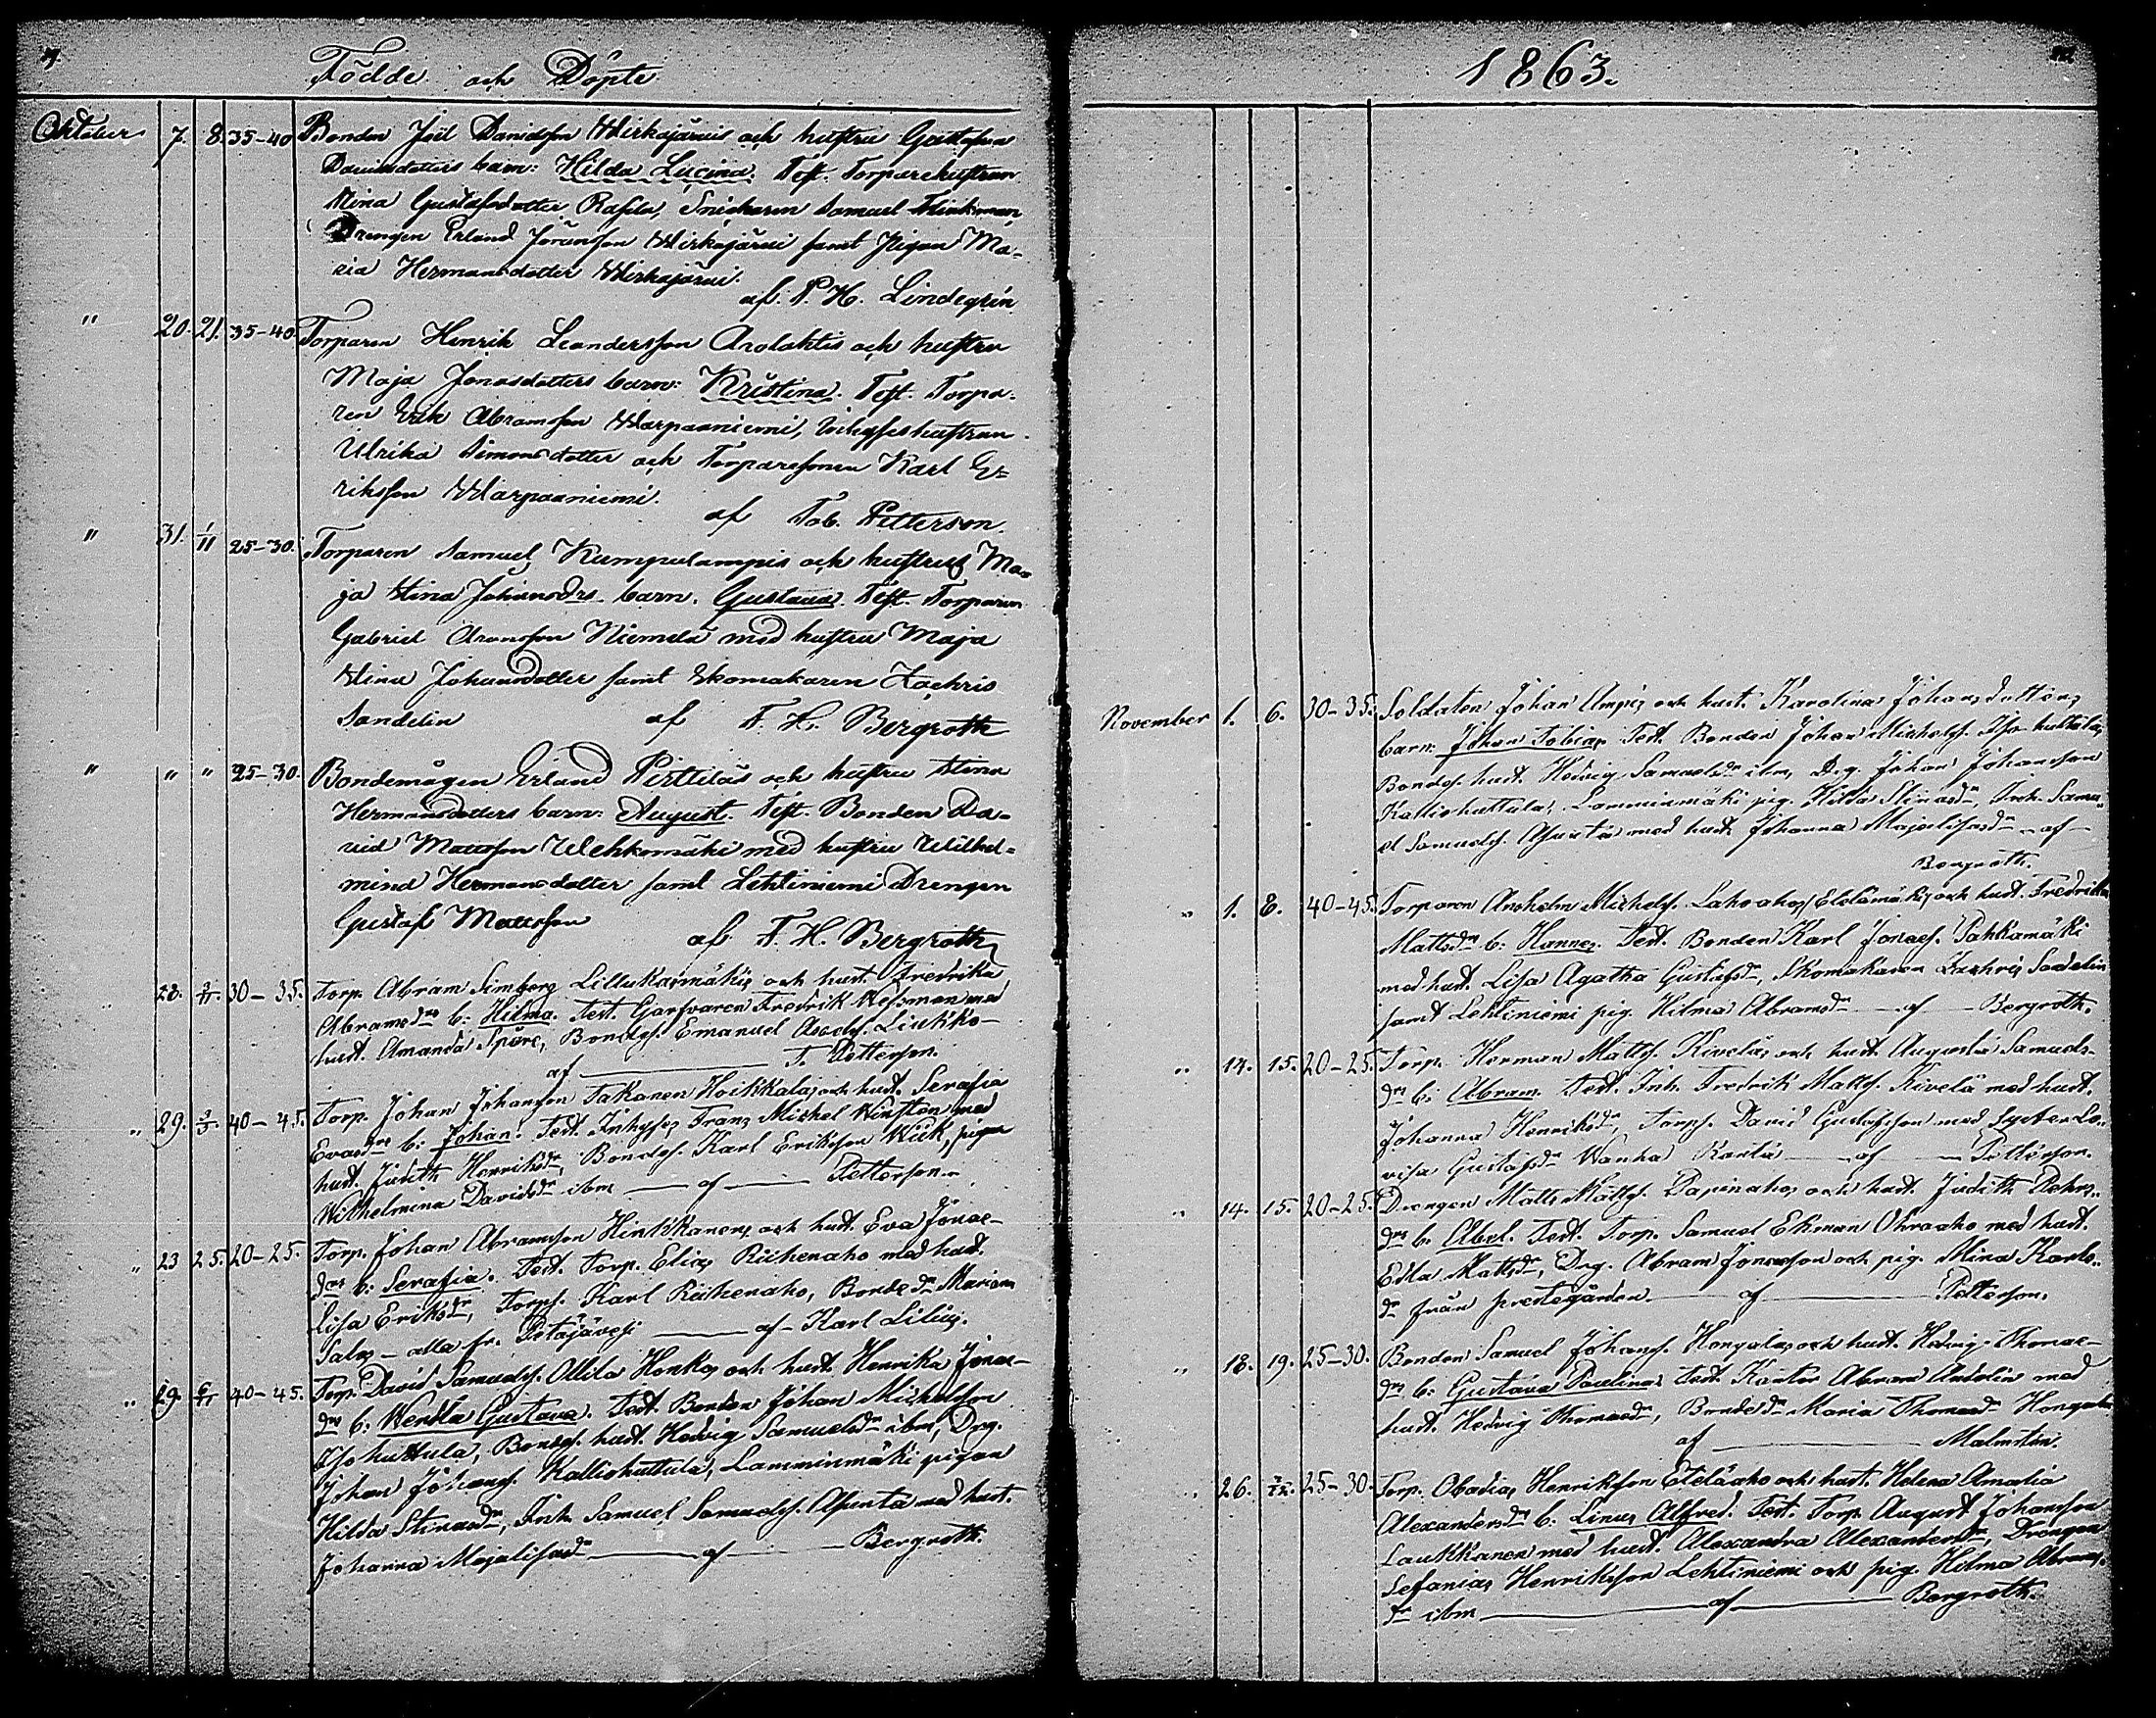 Födde och Döpte
Oktober 7. 8. 35-40 Bonden Joel Davidsson Wirkajärvis och hustru Gustafva
Davidsdotters barn: Hilda Lucina. Test. Torparehustrun
Stina Gustafsdotter Rasila, Snickaren Samuel
Drengen Erland Wirkajärvi samt Pigan Ma-
ria Hermansdotter Wirkajärvi.
af. P. H. Lindegrén
" 20. 21. 35-40. Torparen Henrik Leandersson Arolahtis och hustru
Maja Jonasdotters barn: Kristina. Test. Torpa-
ren Erik Abramsson Warpaaniemi, Inhyseshustrun
Ulrika Simonsdotter och Torparesonen Karl E-
riksson Warpaaniemi.
af Tob. Petterson.
" 31. 1/11 25-30. Torparen Samuel Kumpulampis och hustrus Ma-
ja Stina Johansdrs barn. Gustava. Test. Torparen
Gabriel Aronsson Niemelä med hustru Maja
Stina Johansdotter samt Skomakaren Zachris
Sandelin af F. H. Bergroth
" " " 25-30. Bondemågen Erland Pirttiläs och hustru Stina
Hermansdotters barn: August. Test. Bonden Da-
vid Mattsson Wehkomäki med hustru Wilhel-
mina Hermansdotter samt Lehtiniemi Drengen
Gustaf Mattsson
af F. H. Bergroth
" 28. 30-35. Torp. Abram Simberg Lillukasmäkis och hust. Fredrika
Abramsdrs b: Hilma. Test. Garfvaren Fredrik Wessman med
hust. Amanda Spåre, Bondes. Emanuel Liukko-
af T. Petterson.
" 29. 40-45. Torp. Johan Johansson Takanen Hoikkalas och hust. Serafia
Evasdrs b: Johan. Test. Inhyses Frans Mickel med
hust. Judith Henriksdr, Bondes. Karl Eriksson Wiik, pigan
Wilhelmina Davidsdr ibm af Petterson.
" 23 25. 20-25. Torp. Johan Abramsson Hinkkanens och hust. Eva Jonae-
drs b: Serafia. Test. Torp. Elias Riihenaho med hust.
Lisa Eriksdr, Torps. Karl Riihenaho, Bondedr Mariana
Salas - alla fr. Petäjävesi af Karl Lilius.
" 29. 40-45. Torp. David Samuels. Ollila Honkos och hust. Henrika Jonae-
drs b: Wendla Gustava. Test. Bonden Johan Michelsson
Isohuttula, Bondes. hust. Hedvig Samuelsdr ibm, Drg.
Johan Johans. Kalliohuttula, Lamminmäki pigan
Hilda Stinasdr, Inh. Samuel Samuels. Asunta med hust.
Johanna Majalisasdr af Bergroth.
1863.
November 1. 6. 30-35. Soldaten Johan Ampis och hust. Karolina Johansdotters
barn: Johan Tobias. Test. Bonden Johan Michels. Iso-huttula,
Bondes. hust. Hedvig Samuelsdr ibm, Drg. Johan Johansson
Kalliohuttula, Lamminmäki pig. Hilda Stinasdr, Inh. Samu-
el Samuels. Asunta med hust. Johanna Majalisasdr af
Bergroth.
" 1. 8. 40-45. Torparen Anshelm Michels. Lahoahos (Etelämäki) och hust. Fredrika
Mattsdrs b: Hannes. Test. Bonden Karl Jonaes. Pahkamäki
med hust. Lisa Agatha Gustafsdr, Skomakaren Zachris Sandelin
samt Lehtiniemi pig. Hilma Abramsdr af Bergroth.
" 14. 15. 20-25. Torp. Herman Matts. Kiveläs och hust. Augusta Samuels-
drs b: Abram. Test. Inh. Fredrik Matts. Kivelä med hust.
Johanna Henriksdr, Torps. David Gustafsson med Syster Lo-
visa Gustafsdr Wanha Rantä af Petterson.
" 14. 15. 20-25. Drengen Matts Matts. Papinahos och hust. Judith
drs b: Abel. Test. Torp. Samuel Ekman Ohraaho med hust.
Edla Mattsdr, Drg. Abram Jonasson och pig. Mina Karls-
dr från prestegården af Petterson.
" 18. 19. 25-30. Bonden Samuel Johans. Hongalas och hust. Hedvig Thomae-
drs b: Gustava Paulina. Test. Kantor Abram Andelin med
hust. Hedvig Thomasdr, Bondedr Maria Thomasdr Hongala
af Malmstén.
" 26. 25-30. Torp. Obadias Henriksson Eteläaho och hust. Helena Amalia
Alexandersdrs b: Linus Alfred. Test. Torp. August Johansson
Laukkanen med hust. Alexandra Alexandersdr, Drengen
Sefanias Henriksson Lehtiniemi och pig. Hilma Abrams-
dr ibm af Bergroth.